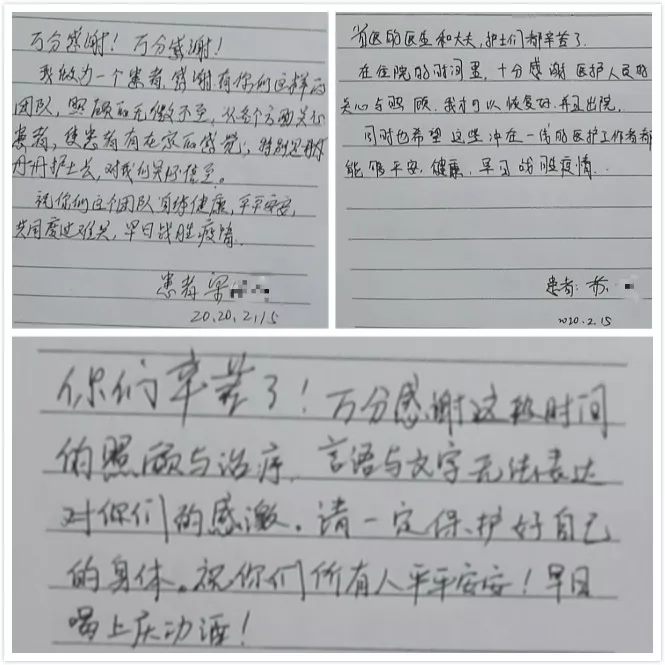 万分感谢！万分感谢！
我做为一个患者，感谢有你们这样的
团队，照顾的无微不至，从各个方面关心
患者，使患者有在家的感觉，特别是
丹丹护士长，对我们关怀倍至。
祝你们这个团队身体健康，平平安安，
共同度过难关，早日战胜疫情。
患者 梁
20.20.2.15
省医的医生和大夫，护士们都辛苦了。
在住院的时间里，十分感谢医护人员的
关心与照顾，我才可以恢复好并且出院，
同时也希望这些冲在一线的医护工作者都
能够平安，健康，早日战胜疫情.
患者：
2020.2.15
你们辛苦了！万分感谢这段时间
的照顾与治疗，言语与文字无法表达
对你们的感激。请一定保护好自己
的身体。祝你们所有人平平安安！早日
喝上庆功酒！